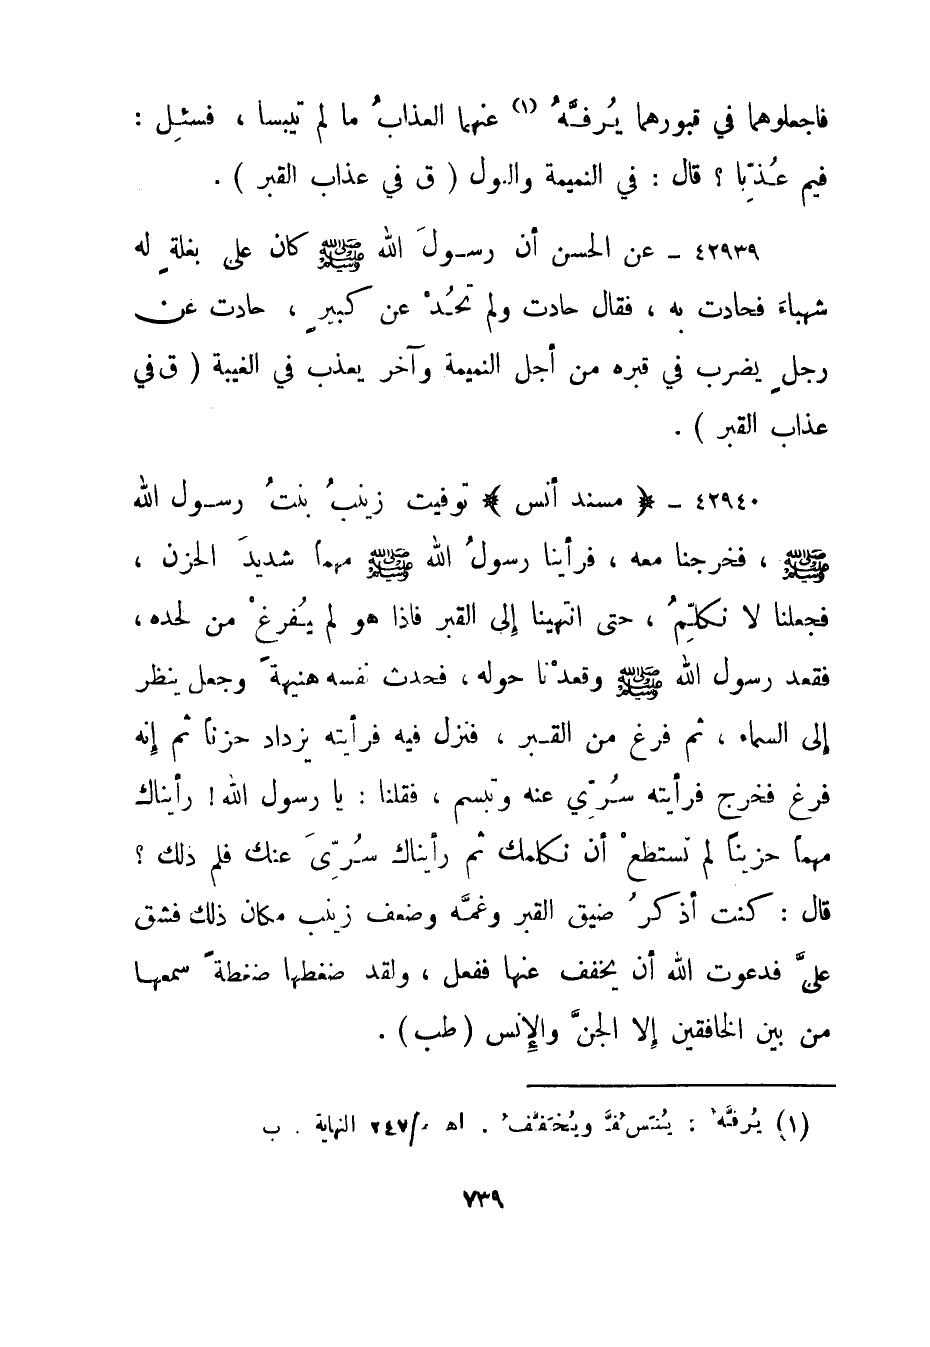 فاجعلوهما في قبورهما يُرفَّهُ (١) عنهما العذابُ ما لم تيبسا ، فسئِل :
فيم عُذِّبا ؟ قال : في النميمة والبول ( ق في عذاب القبر ) .
٤٢٩٣٩ ـ عن الحسن أن رسولَ الله ﷺ كان على بغلةٍ له
شهباءَ فحادت به ، فقال حادت ولم تحُدْ عن كبيرٍ ، حادت عن
رجلٍ يضرب في قبره من أجل النميمة وآخر يعذب في الغيبة ( ق في
عذاب القبر ) .
٤٢٩٤٠ ـ ﴿ مسند أنس ﴾ توفيت زينبُ بنتُ رسول الله
ﷺ ، فخرجنا معه ، فرأينا رسولُ الله ﷺ مهماً شديدَ الحزن ،
فجعلنا لا نكلّمِهُ ، حتى انتهينا إلى القبر فاذا هو لم يُفرغْ من لحده ،
فقعد رسول الله ﷺ وقعدْنا حوله ، فحدث نفسه هنيهةً وجعل ينظر
إلى السماء ، ثم فرغ من القبر ، فنزل فيه فرأيته يزداد حزناً ثم إنه
فرغ فخرج فرأيته سُرِّي عنه وتبسم ، فقلنا : يا رسول الله ! رأيناك
مهماً حزيناً لم نستطعْ أن نكلمك ثم رأيناك سُرِّىَ عنك فلم ذلك ؟
قال : كنت أذكرُ ضيق القبر وغمَّه وضعف زينب مكان ذلك فشق
عليَّ فدعوت الله أن يخفف عنها ففعل ، ولقد ضغطها ضغطةً سمعها
من بين الخافقين إلا الجنَّ والإنس ( طب ) .
(١) يُرفَّه : يُنَفَّس ويُخَفَّف . اهـ ٢/٢٤٧ النهاية . ب
٧٣٩